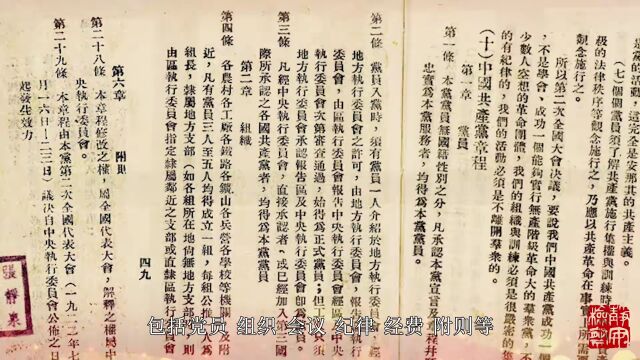 念施行之。
(七)個個黨員須了解共產黨施行集權與訓練時
級的法律秩序等觀念施行之,乃應以共產革命在事實上所需
觀念施行之。
所以第二次全國大會決議,要說我們中國共產黨成功
,不是學會、成功一個能夠實行無產階級革命大的羣衆黨,
少數人空想的革命團體,我們的組織與訓練必須是很嚴密的
的有紀律的,我們的活動必須是不離開羣衆的。
(十)中國共產黨章程
第一章 黨員
第一條 本黨黨員無國籍性別之分,凡承認本黨宣言及章程並
忠實爲本黨服務者,均得爲本黨黨員
第二條 黨員入黨時,須有黨員一人介紹於地方執行委
地方執行委員會之許可,由地方執行委員會,報告
委員會,由區執行委員會報告中央執行委員會經區
執行委員會次第審查通過,始得爲正式黨員;但
地方執行委員會承認報告區及中央執行委員會
第三條 凡經中央執行委員會,直接承認者、或已經加入第三國
際所承認之各國共產黨者,均得爲本黨黨員
第二章 組織
第四條 各農村各工廠各鐵路各鑛山各兵營各學校等機關及附
近,凡有黨員三人至五人均得成立一組,每組公推一人爲
組長,隸屬地方支部(如各組所在地尚無地方支部,則
由區執行委員會指定隸屬鄰近之支部或直隸區執行委員會
四九
第六章 附則
第二十八條 本章程修改之權,屬全國代表大會,解釋之權屬中
央執行委員會。
第二十九條 本章程由本黨第二次全國代表大會(一九二二年七
月十六日—二三日)議決自中央執行委員會公佈之日
起發生效力
張靜泉
包括党员 组织 会议 纪律 经费 附则等